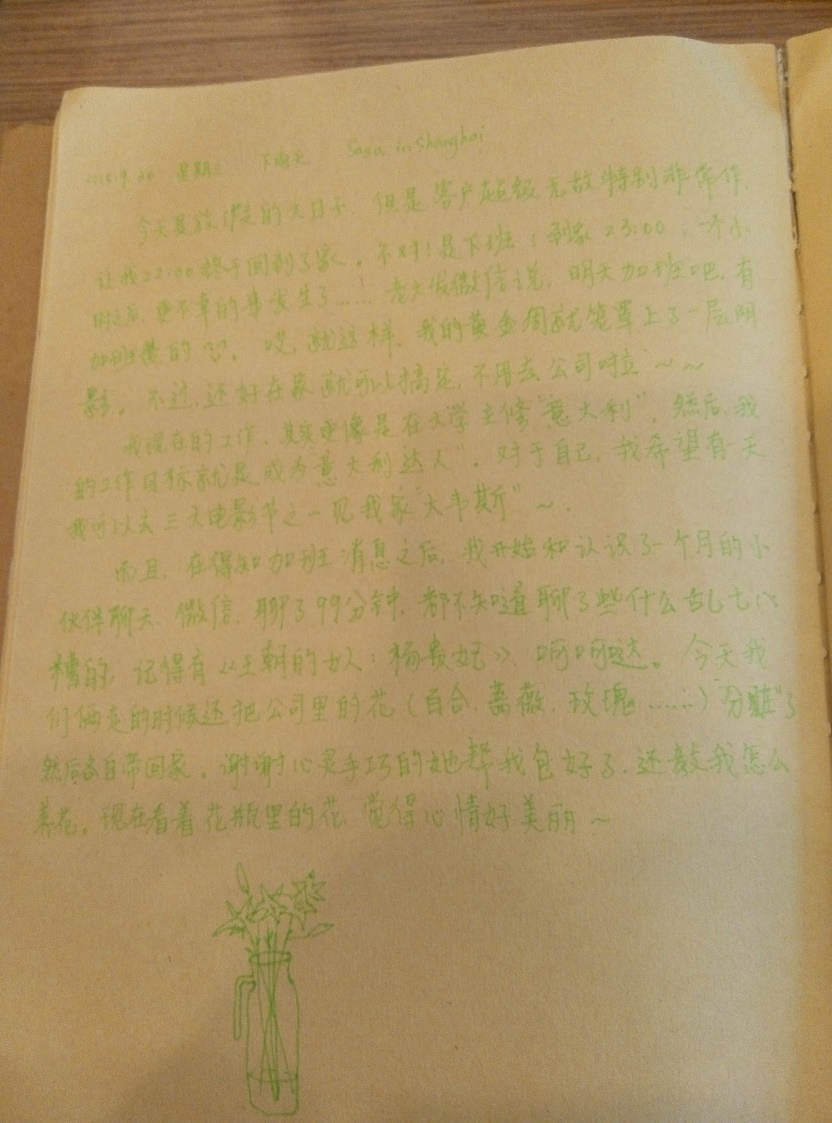 2015.9.30 星期三 下雨天 Sasa in Shanghai
今天是放假的大日子，但是客户超级无敌特别非常作，
让我22:00终于回到了家。不对！是下班（到家23:00），一小
时之后，更不幸的事发生了……！老大发微信说，明天加班吧，有
加班费的。哎，就这样，我的黄金周就笼罩上了一层阴
影。不过，还好在家就可以搞定，不用去公司啦~~
我现在的工作，其实更像是在大学主修“意大利”，然后，我
的工作目标就是成为“意大利达人”。对于自己，我希望有一天
我可以去三大电影节之一见我家“大韦斯”~。
而且，在得知加班消息之后，我开始和认识了一个月的小
伙伴聊天，微信，聊了99分钟，都不知道聊了些什么乱七八
糟的，记得有《王朝的女人：杨贵妃》，呵呵哒。今天我
们俩走的时候还把公司里的花（百合，蔷薇，玫瑰……）“分赃”了
然后各自带回家。谢谢心灵手巧的她帮我包好了，还教我怎么
养花。现在看着花瓶里的花，觉得心情好美丽~